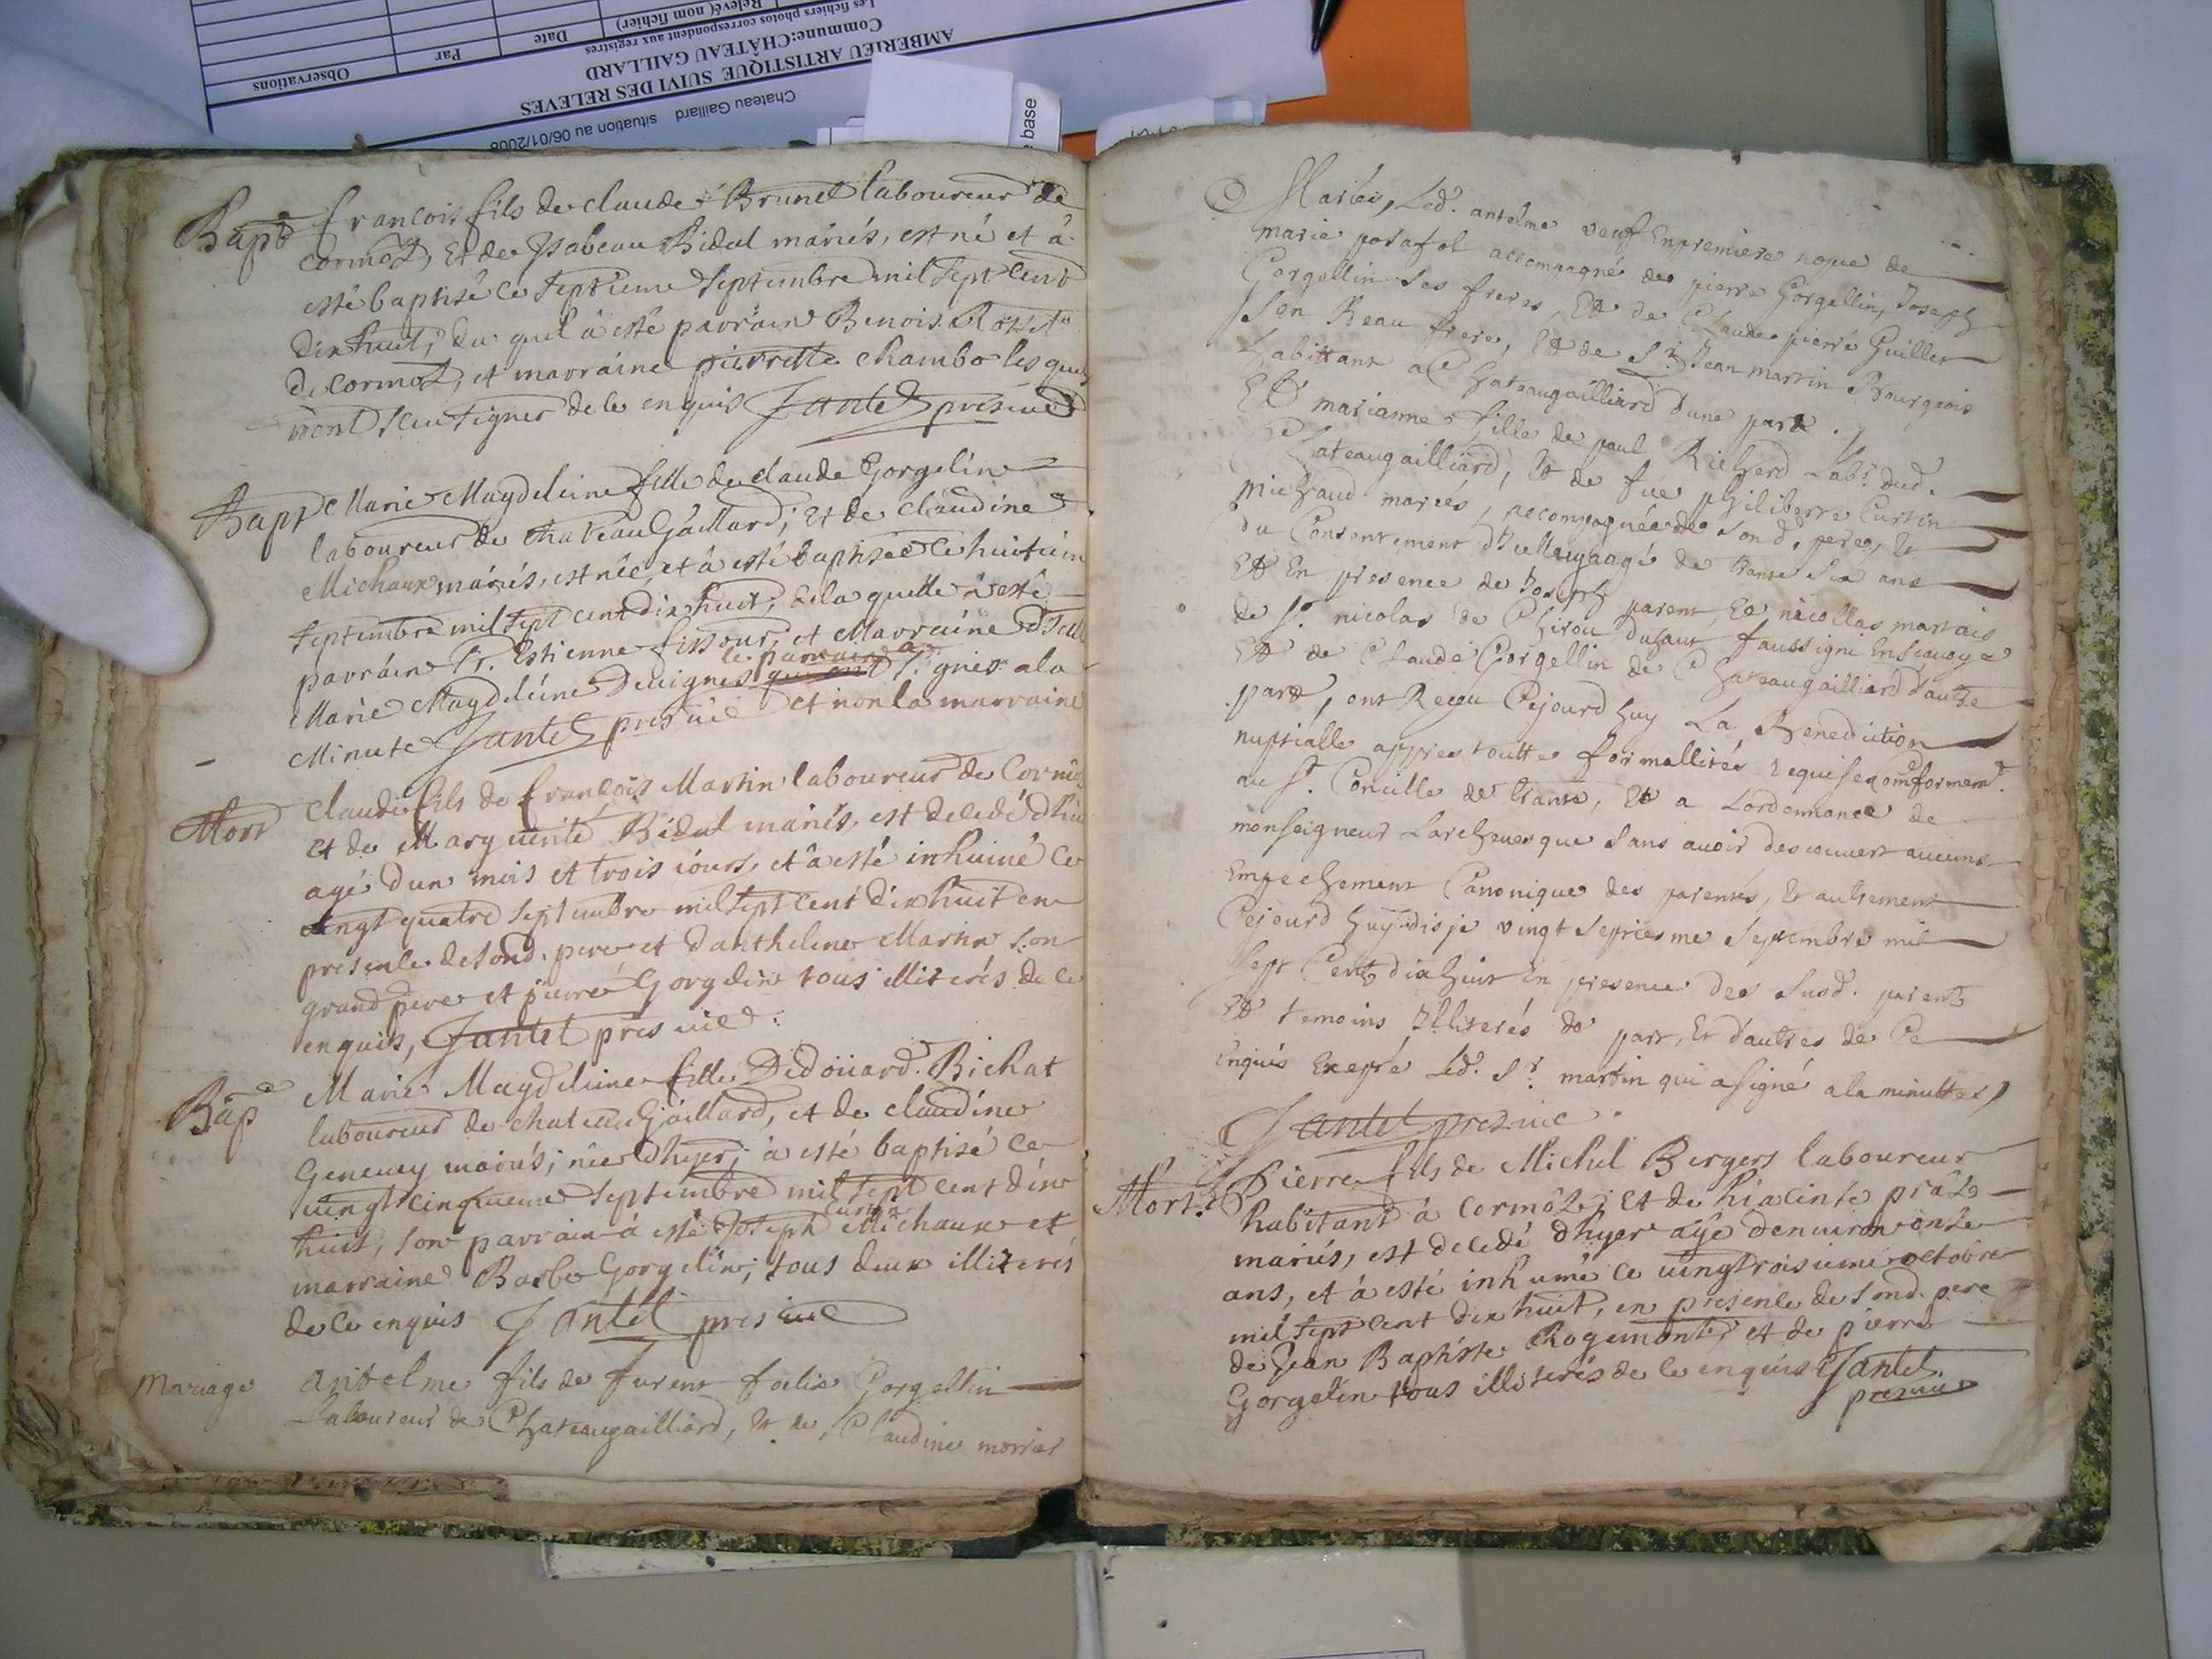 Observations
Par
Date
Relevé( nom fichier)
Les fichiers photos correspondent aux registres
Commune:CHÂTEAU GAILLARD
AMBERIEU ARTISTIQUE SUIVI DES RELEVES
Chateau Gaillard situation au 06/01/2008
base
Bapt francois fils de claude Brunet laboureur de
cormoz, Et de Ysabeau Bidal mariés, est né et à
esté baptisé ce septieme septembre mil sept cent
dix huit, du quel à esté parrain Benoist
de cormoz, et marraine pierrette chambo lesquels
n'ont sceu signer de ce enquis Jantet presvice
Bapt Marie Magdeleine fille de claude Gorgelin
laboureur de chateau Gaillard, et de claudine
Michaux mariés, est née, et à esté baptisée ce huitiem
septembre mil sept cent dix huit, de la quelle à esté
parrain Sr. Estienne fissour, et Marraine dlle
le parrain a
Marie Magdeleine Devignes qui ont signés a la
Minute Jantet presvice et non la marraine
Mort claude fils de françois Martin laboureur de Cormoz
et de Marguerite Bidal mariés, est decedé d'hier
agé d'un mois et trois iours, et à esté inhumé ce
vingt quatre septembre mil sept cent dix huit en
presence de sond. pere et d'anthelme Martin son
grand pere et pierre Gorgelin tous illiterés de ce
enquis, Jantet presvice
Bap Marie Magdeleine fille D'edoüard Bichat
laboureur de chateau Gaillard, et de claudine
Geneuey mariés, née d'hyer, à esté baptisé ce
vingt cinqieme septembre mil sept cent dix
huit, son parrain à esté Joseph curtin Michaux et
marraine Barbe Gorgelin, tous deux illiterés
de ce enquis Jantet presvice
Mariage antelme fils de furent foelix Gorgellin
Laboureur de Chateaugailliard, et de, Claudine morrier
Mariés, Led. antelme veuf En premiere nopce de
marie posafol accompagné de pierre Gorgellin, Joseph
Gorgellin ses freres, Et de Claude pierre Guillet
Son Beau frere, Et de Sr. Jean martin Bourgeois
habittant a Chateaugailliard d'une part.
Et marianne fille de paul Richerd Labr. dud.
Chateaugailliard, et de fue philiberte Curtin
michaud mariés, accompagnée de sond. pere, et
du Consentement agé de trante six ans
Et En presence de Joseph parent, Et nicollas martais
de St. nicolas de Chirou du haut faussigni En Savoye
Et de Claude Gorgellin de Chateaugailliard d'autre
part, ont Reçeu Cejourdhuy La Benediction
nuptialle appres toutte formallités requises Comformemt.
au St. Concille de trante, Et a Lordonnance de
monseigneur Larchevesque sans avoir descouvert aucuns
Empechement Canonique des parentés, et autrement
Cejourdhuy disje vingt septiesme septembre mil
sept Cent dix huit En presence des susd. parents
Et temoins Illiterés de part, Et d'autres de Ce
Enquis Exepté Led. Sr. martin qui a signé a la minutte,
Jantet presvice.
Mort. Pierre fils de Michel Bergers laboureur
habitant à cormôz, Et de hiacinte prâto
mariés, est decedé d'hyer agé d'environ onze
ans, et à esté inhumé ce vingtroisieme octobre
mil sept cent dix huit, en presence de sond. pere
de Jean Baptiste Rogemont, et de pierre
Gorgelin tous illiterés de ce enquis Jantet
presvice